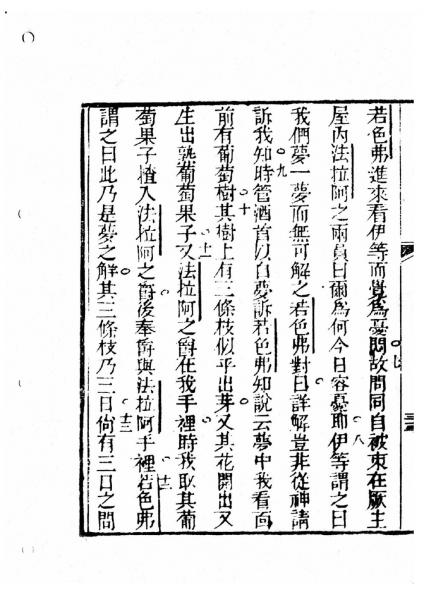 若色弗進來看伊等而覺爲憂悶故問同自被束在厥主
屋內法拉阿之兩員曰爾爲何今日容憂耶伊等謂之曰
我們夢一夢而無可解之若色弗對曰詳解豈非從神請
訴我知時管酒首以自夢訴若色弗知說云夢中我看面
前有葡萄樹其樹上有三條枝似乎出芽又其花開出又
生出熟葡萄果子又法拉阿之爵在我手裡時我取其葡
萄果子榨入法拉阿之爵後奉爵與法拉阿手裡若色弗
謂之曰此乃是夢之解其三條枝乃三日尙有三日之間
七
八
九
十
十一
十二
十三